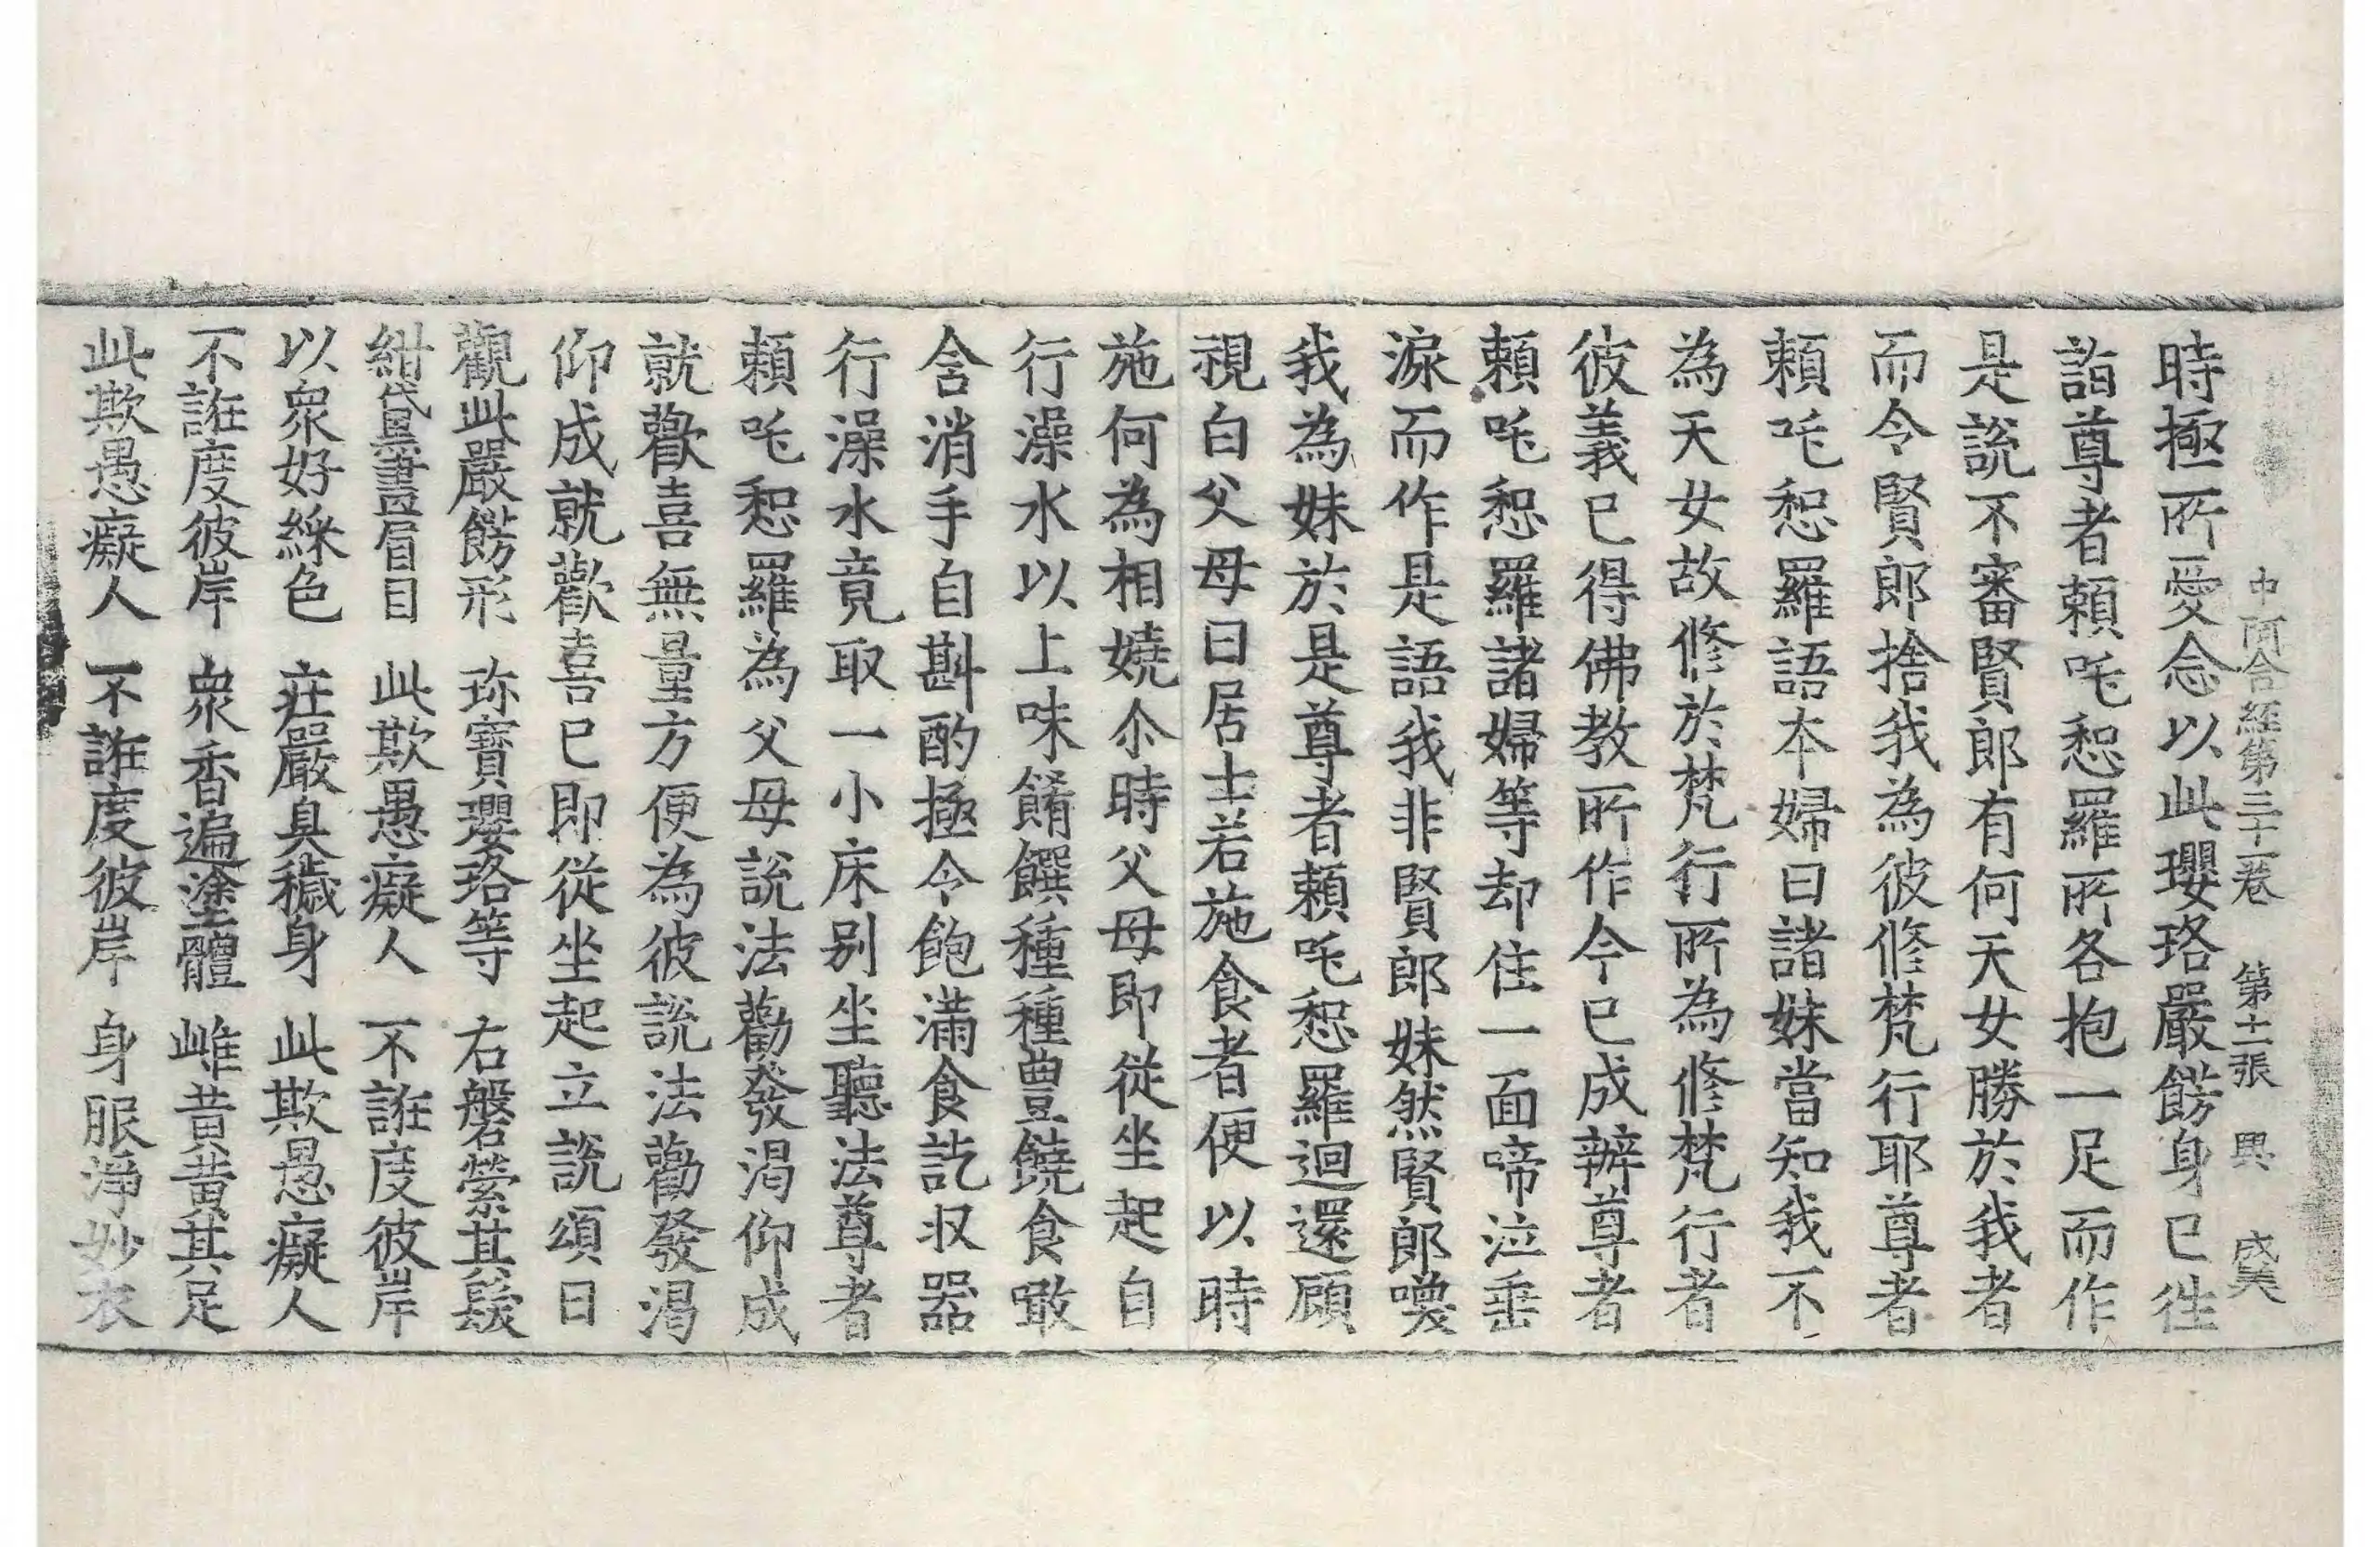 中阿含經第三十一卷 第十二張 興 盛
時極所愛念以此瓔珞嚴餝身已徃
詣尊者頼吒惒羅所各抱一足而作
是說不審賢郎有何天女勝於我者
而令賢郎捨我為彼修梵行耶尊者
頼吒惒羅語本婦曰諸妹當知我不
為天女故修於梵行所為修梵行者
彼義已得佛教所作今已成辦尊者
頼吒惒羅諸婦等却住一面啼泣垂
淚而作是語我非賢郎妹然賢郎喚
我為妹於是尊者頼吒惒羅迴還顧
視白父母曰居士若施食者便以時
施何為相嬈尒時父母即從坐起自
行澡水以上味餚饌種種豊饒食噉
含消手自斟酌極令飽滿食訖収器
行澡水竟取一小床別坐聽法尊者
頼吒惒羅為父母說法勸發渴仰成
就歡喜無量方便為彼說法勸發渴
仰成就歡喜已即從坐起立說頌曰
觀此嚴餝形 珎寶瓔珞等 右盤縈其髮
紺黛畫眉目 此欺愚癡人 不誑度彼岸
以衆好綵色 莊嚴臭穢身 此欺愚癡人
不誑度彼岸 衆香遍塗體 雌黃黃其足
此欺愚癡人 不誑度彼岸 身服淨妙衣